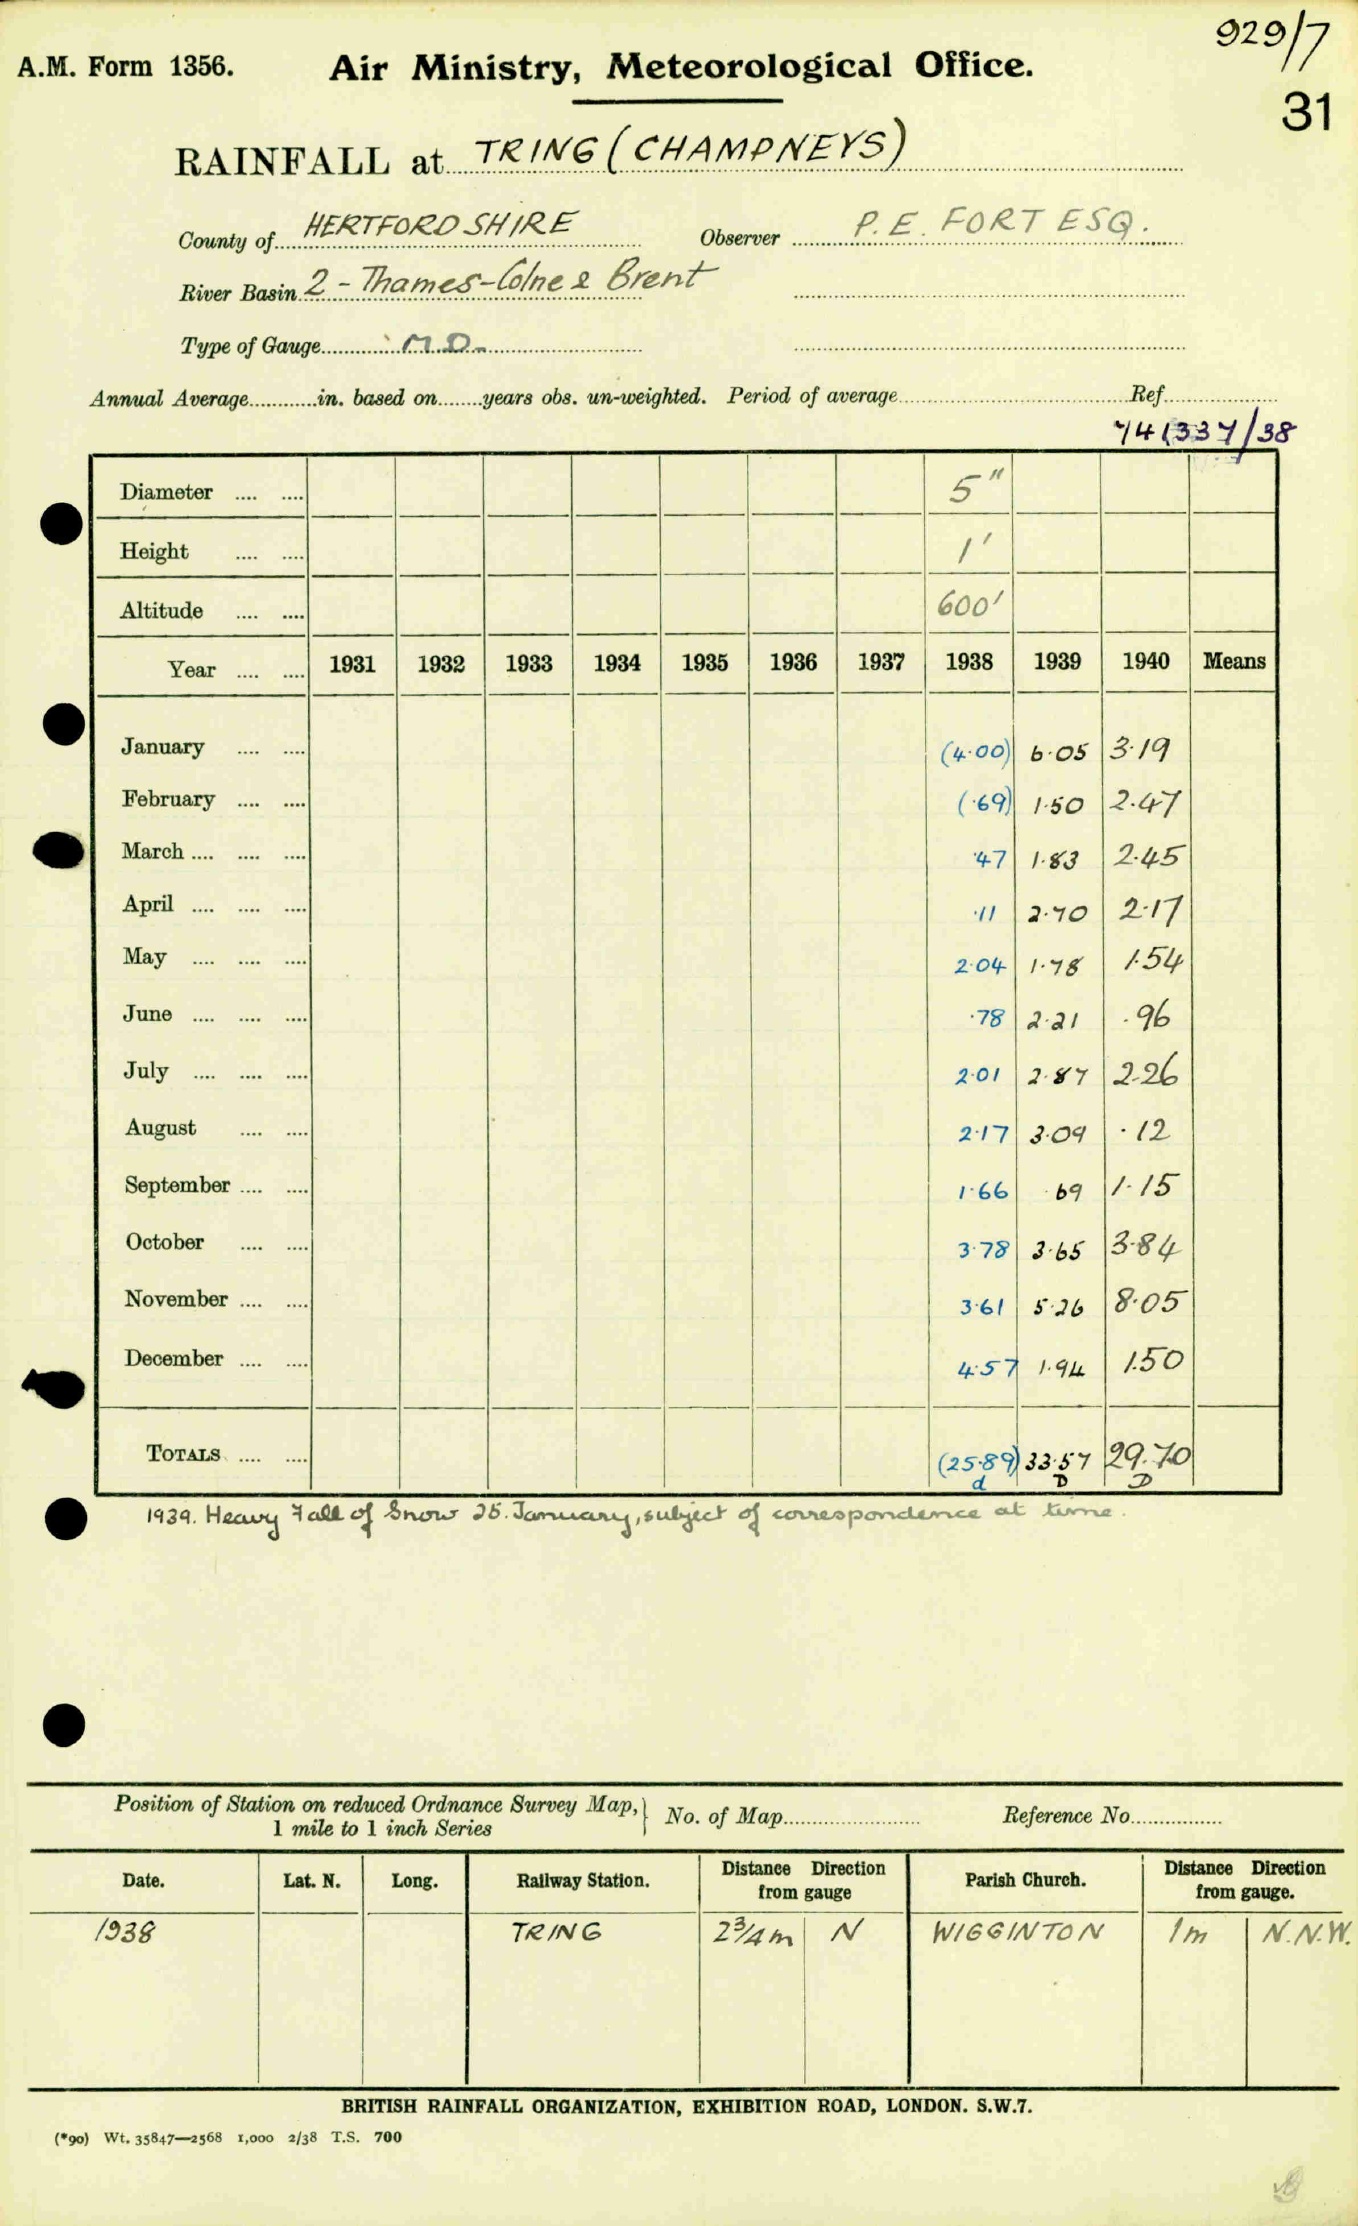 929/7
A.M. Form 1356. Air Ministry, Meteorological Office.
31
RAINFALL at TRING (CHAMPNEYS)
County of HERTFORDSHIRE Observer P. E. FORT ESQ.
River Basin 2 - Thames-Colne & Brent
Type of Gauge M.D.
Annual Average in. based on years obs. un-weighted. Period of average Ref.
/38
Diameter .... .... 5"
Height .... .... 1'
Altitude .... .... 600'
Year .... .... 1931 1932 1933 1934 1935 1936 1937 1938 1939 1940 Means
January .... .... (4.00) 6.05 3.19
February .... .... (.69) 1.50 2.47
March .... .... .... .47 1.83 2.45
April .... .... .... .11 2.70 2.17
May .... .... .... 2.04 1.78 1.54
June .... .... .... .78 2.21 .96
July .... .... .... 2.01 2.87 2.26
August .... .... 2.17 3.09 .12
September .... .... 1.66 .69 1.15
October .... .... 3.78 3.65 3.84
November .... .... 3.61 5.26 8.05
December .... .... 4.57 1.94 1.50
TOTALS .... .... (25.89) 33.57 29.70
d D D
1939. Heavy Fall of Snow 25. January, subject of correspondence at time.
Position of Station on reduced Ordnance Survey Map, 1 mile to 1 inch Series } No. of Map Reference No.
Date. Lat. N. Long. Railway Station. Distance Direction from gauge Parish Church. Distance Direction from gauge.
1938 TRING 2¾m N WIGGINTON 1m N.N.W.
BRITISH RAINFALL ORGANIZATION, EXHIBITION ROAD, LONDON. S.W.7.
(*90) Wt. 35847—2568 1,000 2/38 T.S. 700